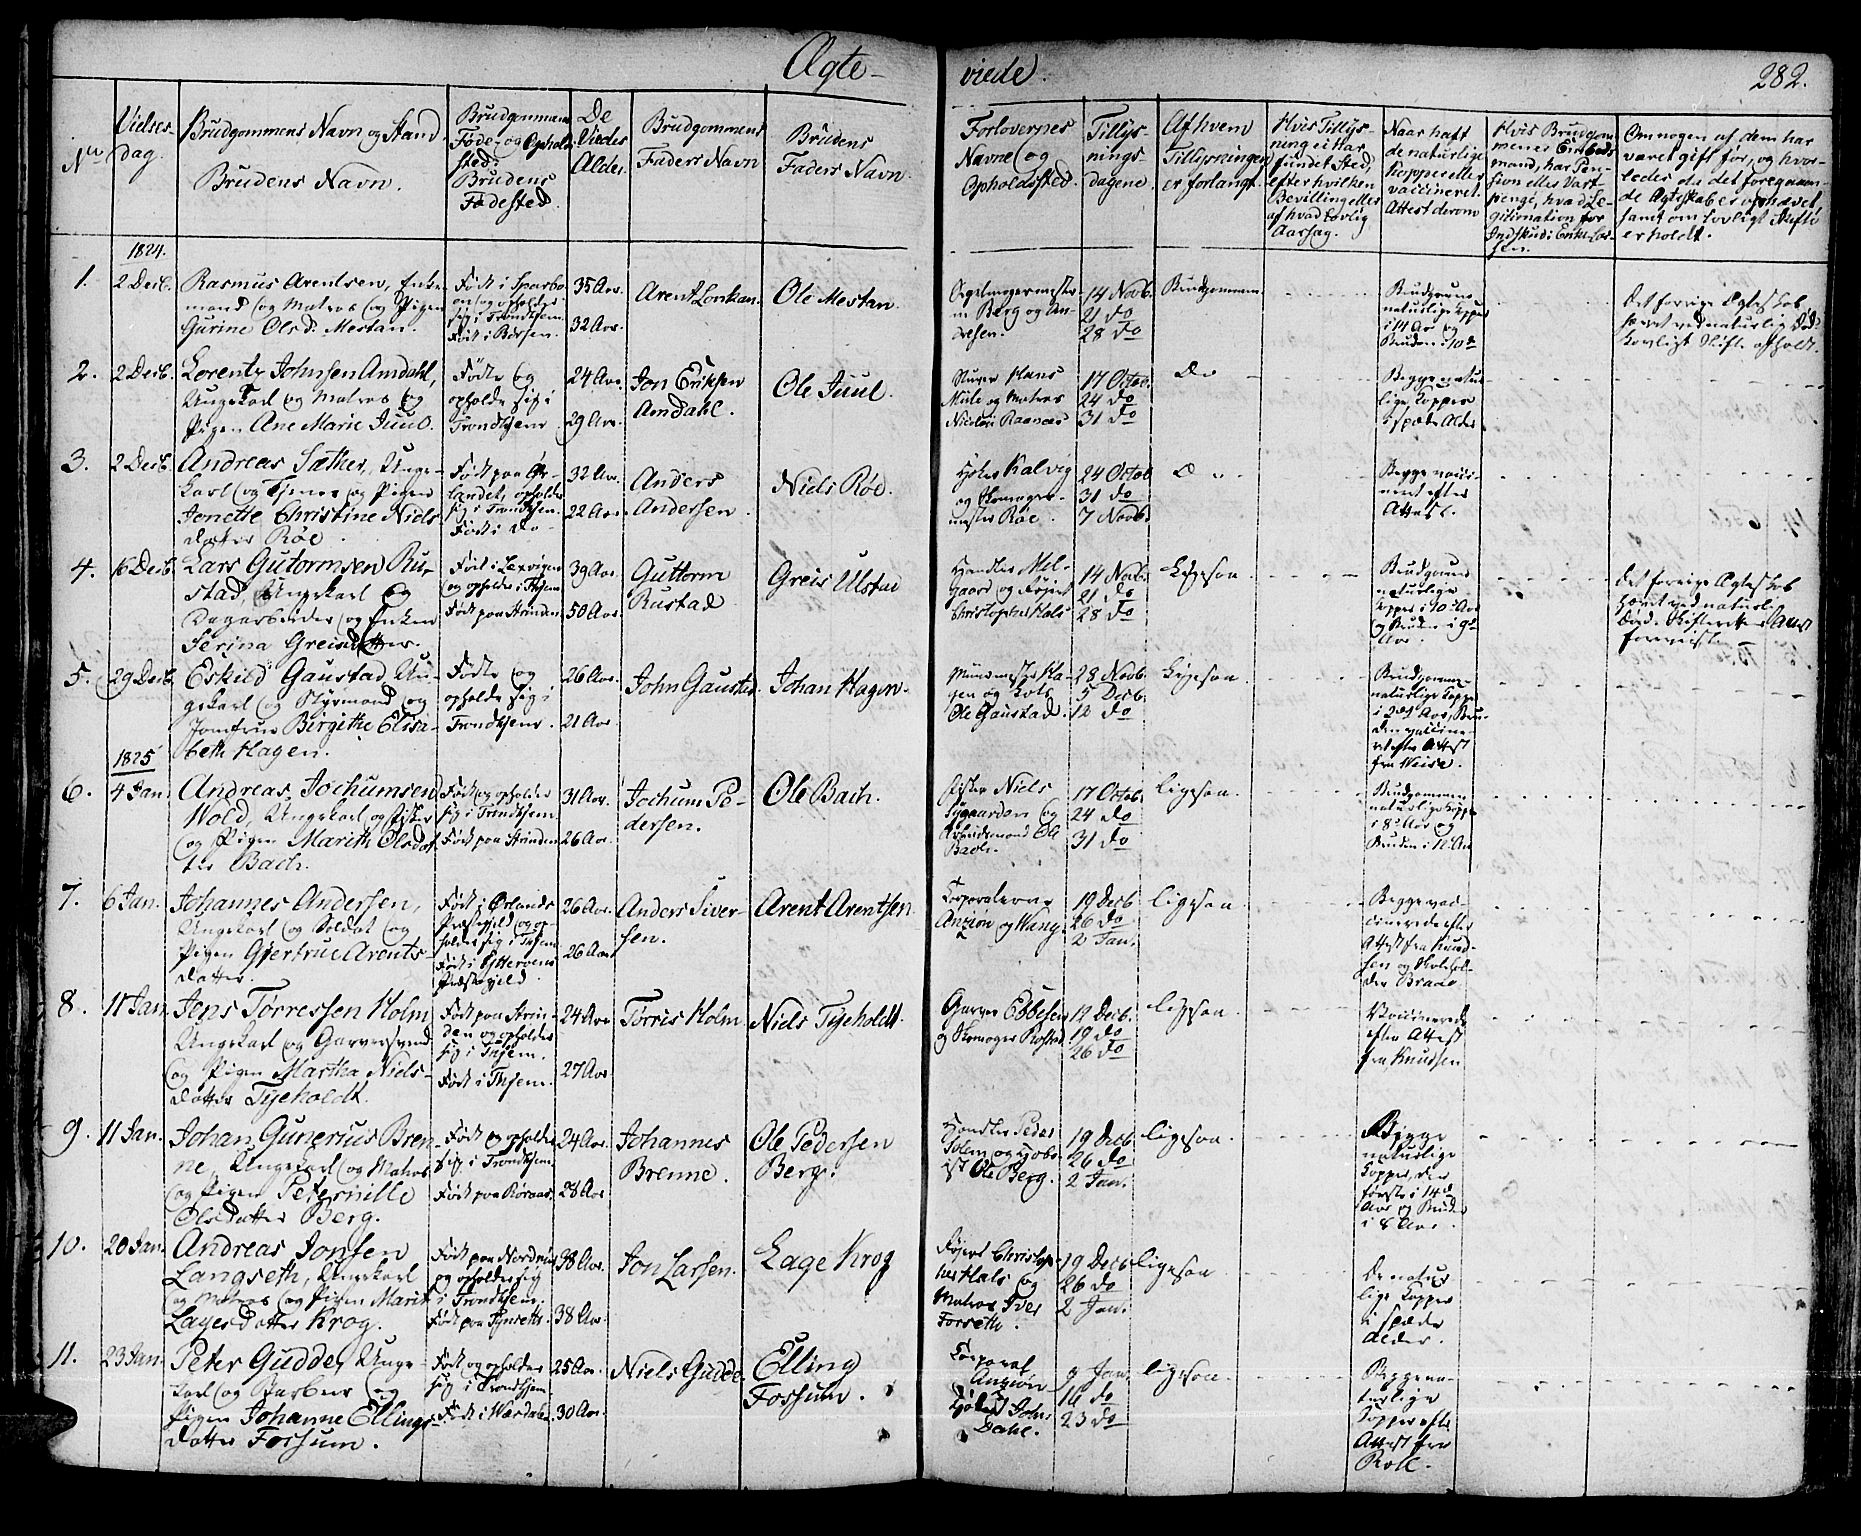 Ægte-
viede.
282.
No
Vielses-
dag.
Brudgommens Navn og Stand
Brudens Navn.
Brudgommens
Føde- og Ophold-
sted.
Brudens
Fødested.
De
Viedes
Alder.
Brudgommens
Faders Navn
Brudens
Faders Navn.
Forlovernes
Navne og
Opholdssted.
Tillys-
nings-
dagene.
Af hvem
Tillysningen
er forlangt.
Hvis Tillys-
ning ei har
fundet Sted,
efter hvilken
Bevilling eller
af hvad lovlig
Aarsag.
Naar haft
de naturlige
kopper eller
vaccineret.
Attest derom
Hvis Brudgom-
menes Embeds-
mand, har Pen-
sion eller Vart-
penge, hvad Le-
gitimation for
Indskud i Enke Cas-
sen.
Om nogen af dem har
været gift før, og hvor-
ledes da det foregaaen-
de Ægteskab er ophævet,
samt om lovligt Skifte
er holdt.
1824.
1. 2 Decb. Rasmus Arentsen, Enke-
mand og Matros og Pigen
Gurine Olsd. Mestan.
Født i Sparbo-
en og opholder
sig i Trondhjem.
Født i Børsen.
35 Aar.
32 Aar.
Arent Lonkan.
Ole Mestan.
in Berg og An-
dresen.
14 Novb.
21 do
28 do
Brudgommen
Brudgoms
naturlige kopper
i 14 Aar og
Bruden i 10de
Det forrige Ægteskab
hævet ved naturlig Død.
Lovligt Skifte afholdt.
2. 2 Decb. Lorentz Johnsen Amdahl,
Ungekarl og Matros og
Pigen Ane Marie Juul.
Fødte og
opholde sig i
Trondhjem
24 Aar.
29 Aar.
Jon Eriksen
Amdahl.
Ole Juul.
Hans
og Matros
Nicolai Raanæs
17 Octob.
24 do
31 do
Do
Begge natur-
lige Kopper
i spæde Alder
3. 2 Decb. Andreas Sæther, Unge-
karl og Tjener og Pigen
Jonette Christine Niels
datter Røe.
Født paa Ør-
landet, opholder
sig i Trondhjem.
Født i Do-
32 Aar.
22 Aar.
Anders
Andersen.
Niels Røe.
Kalvig
og Skomager-
mester Røe.
24 Octob.
31 do
7 Novb.
Do
Begge vacci-
neret efter
Attest.
4. 16 Decb. Lars Gutormsen Ru-
stad, Ungekarl og
Dagarbeider og Enken
Serina Greisdatter.
Født i Lexvigen
og opholder i Thjem
Født paa Strinden
39 Aar.
50 Aar.
Guttorm
Rustad
Greis Ulstad
Handler Mel-
gaard og Føjert
Christopher Hals
14 Novb.
21 do
28 do
Ligesaa.
Brudgommen
naturlige
Kopper i 10de Aar
og Bruden i 9de
Aar
Det forrige Ægteskab
hævet ved naturl.
Død.
foreviist.
5. 29 Decb. Eskild Gaustad, Un-
gekarl og Styrmand og
Jomfrue Birgithe Elisa-
beth Hagen.
Fødte og
opholde sig i
Trondhjem.
26 Aar.
21 Aar.
John Gaustad.
Johan Hagen.
Muurmester Ha-
gen og Lots
Ole Gaustad.
28 Novb.
5 Decb.
12 do
Ligesaa.
Brudgommen
naturlige Kopper
i 2det Aar, Bru-
den vaccine-
ret efter Attest
fra Weise.
1825
6. 4 Jan. Andreas Jochumsen
Wold, Ungekarl og Fisker
og Pigen Marith Olsdat-
ter Bach.
Født og opholder
sig i Trondhjem
Født paa Strinden
31 Aar.
26 Aar.
Jochum Pe-
dersen.
Ole Bach.
Fisker Niels
Nygaarden og
Arbeidsmand Ole
Bach.
17 Octob.
24 do
31 do
Ligesaa.
Brudgommen
naturlige Kopper
i 8de Aar og
Bruden i 12 Aar
7. 6 Jan. Johannes Andersen,
Ungekarl og Soldat og
Pigen Gjertrue Arents-
datter.
Født i Ørlands
Præstegjeld og op-
holder sig i Thjem
Født i Ytterøens
Præstegjeld.
26 Aar.
26 Aar
Anders Siver-
sen.
Arent Arentsen
Corporalerne
Anzion og Wang.
19 Decb
26 do
2 Jan.
Ligesaa.
Begge vac-
cinerede efter
Attest fra Knud-
sen og Skolehol-
der Brade
8. 11 Jan. Jens Tørressen Holm
Ungekarl og Garversvend
og Pigen Martha Niels-
datter Tyeholdt.
Født paa Strin-
den og opholder
sig i Thjem.
Født i Thjem.
24 Aar
27 Aar
Tørris Holm
Niels Tyeholdt.
Garver Ebbesen
og Skomager Rostad
12 Decb.
19 do
26 do
Ligesaa.
Vaccinerede
efter Attest
fra Knudsen
9. 11 Jan. Johan Gunerius Bren-
ne, Ungekarl og Matros
og Pigen Peternille
Olsdatter Berg.
Født og opholder
sig i Trondhjem
Født paa Røraas.
24 Aar.
28 Aar
Johannes
Brenne.
Ole Pedersen
Berg.
Handler Peder
Solem og
Ole Berg.
19 Decb.
26 do
2 Jan.
Ligesaa.
Begge
naturlige
Kopper, den
første i 14de
Aar og Bruden
i 8 Aar.
10. 20 Jan. Andreas Jonsen
Langseth, Ungekarl
og Matros og Pigen Marit
Lagesdatter Krog.
Født paa Nordmør
og opholder sig
i Trondhjem.
Født paa Tynseth.
38 Aar.
38 Aar.
Jon Larsen.
Lage Krog
Føjert Christop-
her Hals og
Matros Iver
Forseth.
19 Decb.
26 do
2 Jan.
Ligesaa
De natur
lige Kopper
i spæde
Alder.
11. 23 Jan. Peter Gudde, Unge-
karl og Barber og
Pigen Johanne Ellings-
datter Fossum.
Født og opholder
sig i Trondhjem
Født i Værdalen
25 Aar.
30 Aar.
Niels Gudde.
Elling
Fossum.
Corporal
Anzion
John
Dahl.
9 Jan.
16 do
23 do
Ligesaa.
Begge na-
turlige
Kopper efter
Attest fra
Roll.